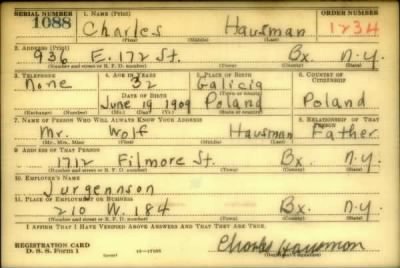 SERIAL NUMBER 1. NAME (Print) ORDER NUMBER
1088 Charles Hausman 1234
(First) (Middle) (Last)
2. ADDRESS (Print)
936 E. 172 St. Bx. N.Y.
(Number and street or R. F. D. number) (Town) (County) (State)
3. TELEPHONE 4. AGE IN YEARS 5. PLACE OF BIRTH 6. COUNTRY OF CITIZENSHIP
None 32 Galicia
DATE OF BIRTH (Town or county)
June 19 1909 Poland Poland
(Exchange) (Number) (Mo.) (Day) (Yr.) (State or country)
7. NAME OF PERSON WHO WILL ALWAYS KNOW YOUR ADDRESS 8. RELATIONSHIP OF THAT PERSON
Mr. Wolf Hausman Father
(Mr., Mrs., Miss) (First) (Middle) (Last)
9. ADDRESS OF THAT PERSON
1712 Filmore St. Bx. N.Y.
(Number and street or R. F. D. number) (Town) (County) (State)
10. EMPLOYER'S NAME
Jurgennson
11. PLACE OF EMPLOYMENT OR BUSINESS
210 W. 184 Bx. N.Y.
(Number and street or R. F. D. number) (Town) (County) (State)
I AFFIRM THAT I HAVE VERIFIED ABOVE ANSWERS AND THAT THEY ARE TRUE.
REGISTRATION CARD
D. S. S. Form 1 (over) Charles Hausman